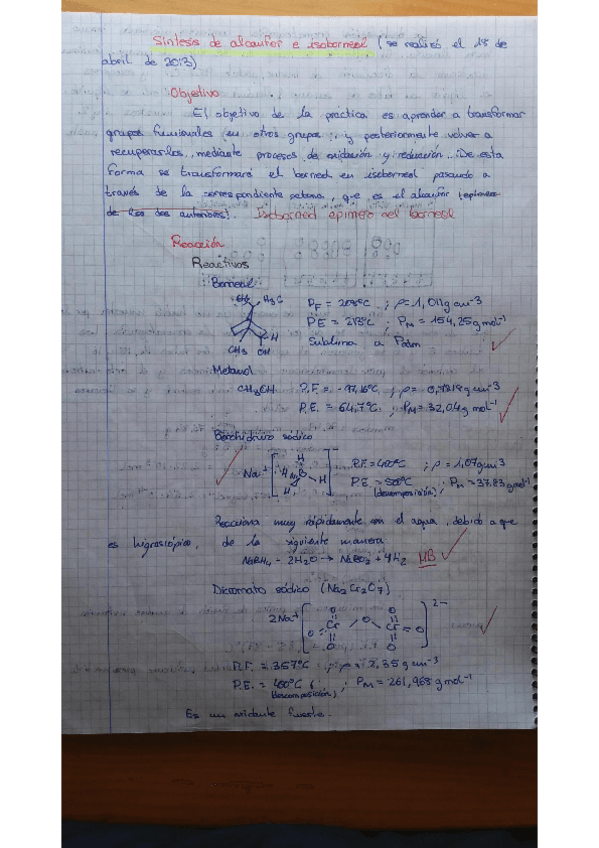 Síntesis de alcanfor e isoborneol (se realizó el 15 de
abril de 2013)
Objetivo
El objetivo de la practica es aprender a transformar
grupos funcionales en otros grupos, y posteriormente volver a
recuperarlos, mediante procesos de oxidación y reducción. De esta
forma se transformará el borneol en isoborneol pasando a
través de la correspondiente cetona, que es el alcanfor (epimero
de los dos anteriores). Isoborneol epimero del borneol
Reacción
Reactivos
Borneol
CH3 H3C
H
CH3 OH
PF = 208ºC ; ρ = 1,011 g cm-3
P.E = 213ºC ; PM = 154,25 g mol-1
Sublima a Patm
Metanol
CH3OH P.F. = -97,16ºC ; ρ = 0,7918 g cm-3
P.E. = 64,7ºC ; PM = 32,04 g mol-1
Borohidruro sódico
Na+ [H H B H H]-
P.F. = 400ºC ; ρ = 1,07 g cm-3
P.E = 500ºC ; PM = 37,83 g mol-1
(descomposición)
Reacciona muy rápidamente con el agua, debido a que
es higroscópico, de la siguiente manera
NaBH4 - 2H2O → NaBO2 + 4H2 MB
Dicromato sódico (Na2Cr2O7)
2Na+ [O O O Cr O Cr O O O] 2-
P.F. = 357ºC ; ρ = 2,35 g cm-3
P.E. = 400ºC ; PM = 261,968 g mol-1
(descomposición)
Es un oxidante fuerte.